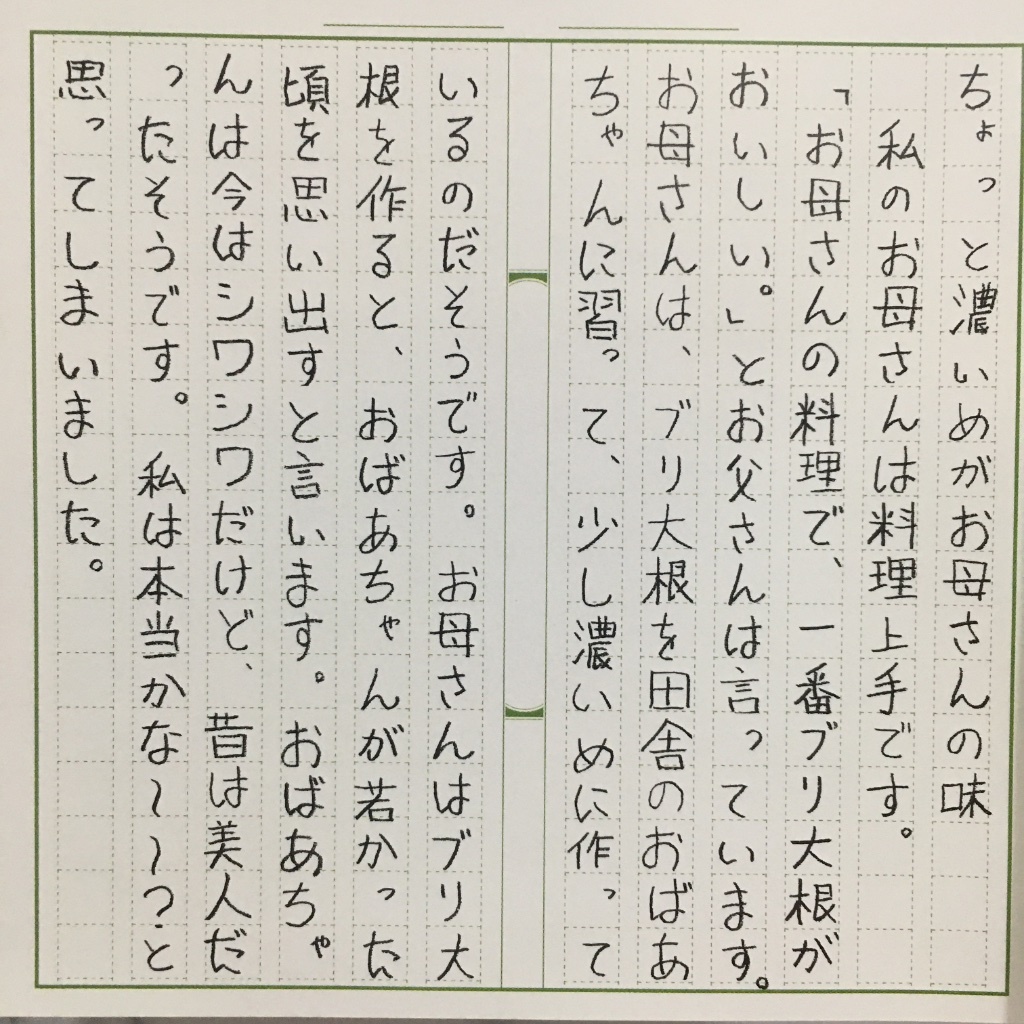 ちょっと濃いめがお母さんの味
私のお母さんは料理上手です。
「お母さんの料理で、一番ブリ大根が
おいしい。」とお父さんは言っています。
お母さんは、ブリ大根を田舎のおばあ
ちゃんに習って、少し濃いめに作って
いるのだそうです。お母さんはブリ大
根を作ると、おばあちゃんが若かった
頃を思い出すと言います。おばあちゃ
んは今はシワシワだけど、昔は美人だ
ったそうです。私は本当かな〜〜?と
思ってしまいました。